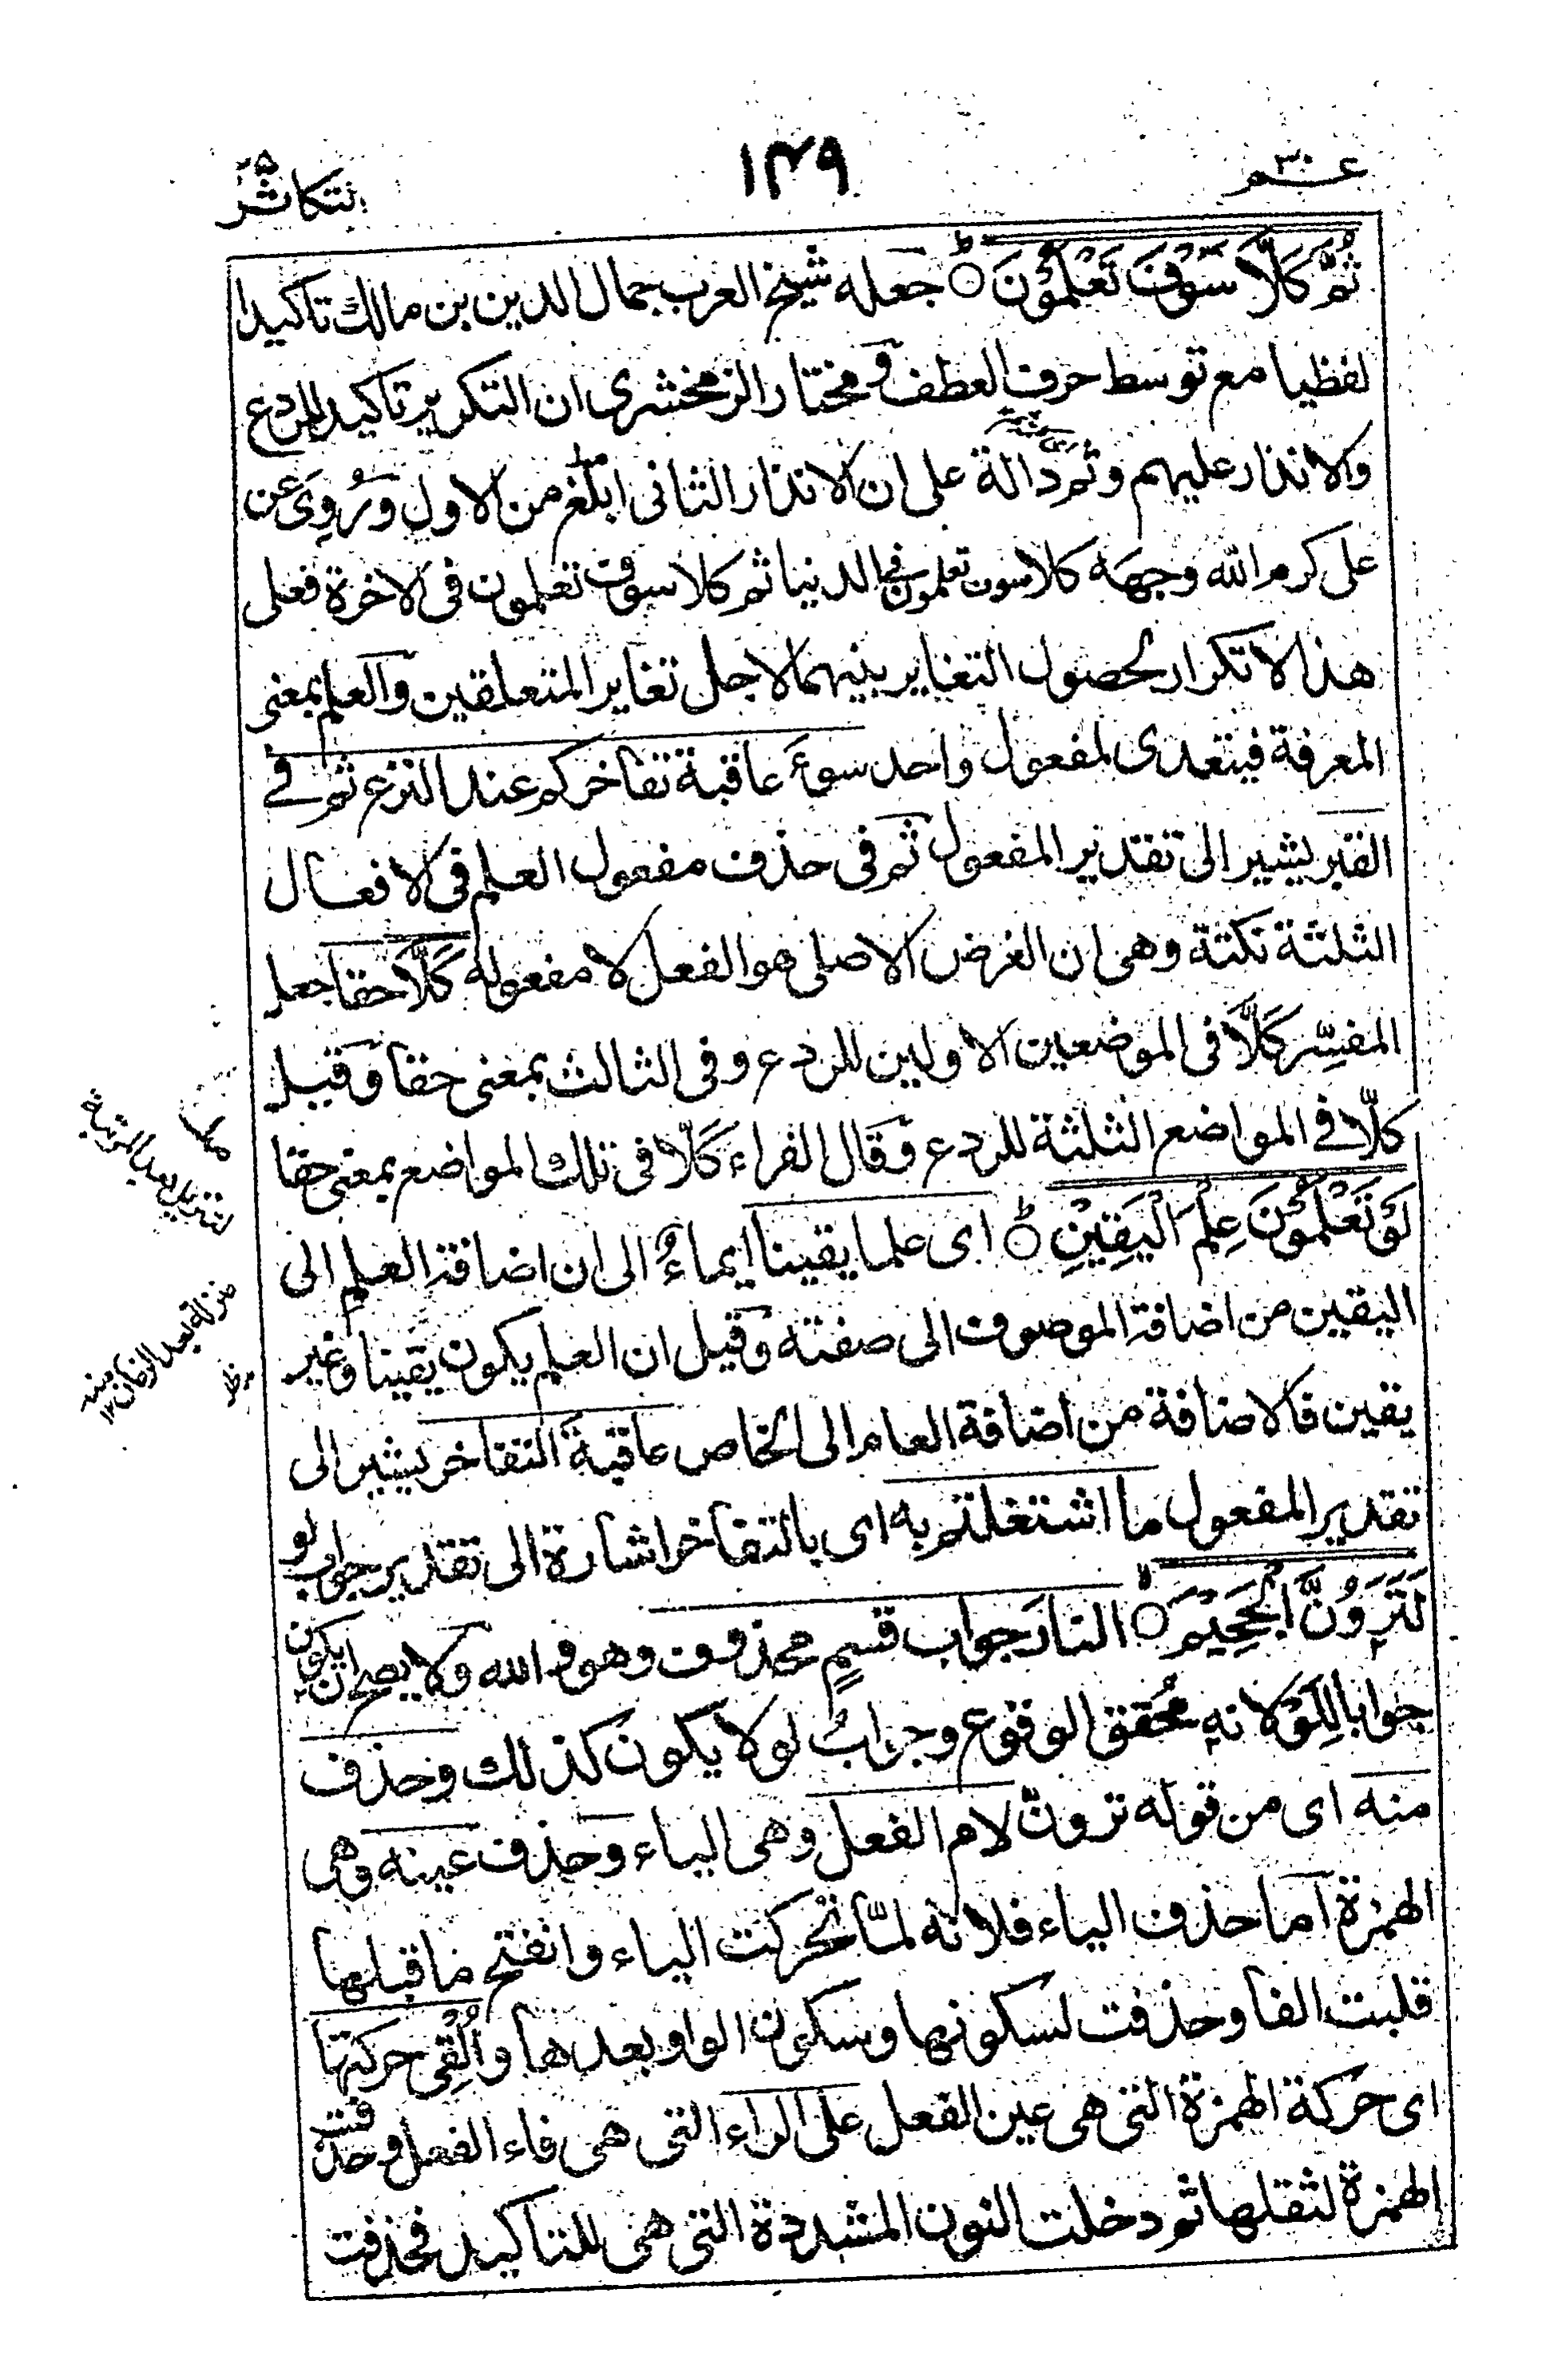 عــم ٣٠
١٤٩
التكاثر
ثُمَّ كَلَّا سَوْفَ تَعْلَمُوْنَ ۞ جعله شيخ العرب جمال الدين بن مالك تاكيدا
لفظيا مع توسط حرف العطف و مختار الزمخشرى ان التكرير تاكيد للردع
والانذار عليهم وثم دالة على ان الانذار الثانى ابلغ من الاول وَرُوِىَ عن
على كرم الله وجهه كلا سوف تعلمون فى الدنيا ثم كلا سوف تعلمون فى الاخرة فعلى
هذا لا تكرار لحصول التغاير بينهما لاجل تغاير المتعلقين والعلم بمعنى
المعرفة فيتعدى لمفعول واحد سوءَ عاقبة تفاخركم عند النزع ثم فے
القبر يشير الى تقدير المفعول ثم فى حذف مفعول العلم فى الافعال
الثلثة نكتة وهى ان الغرض الاصلى هو الفعل لا مفعوله كَلَّا حقا جعل
المفسِّر كَلَّا فى الموضعين الاولين للردع وفى الثالث بمعنى حقا وقيل
كلّا فے المواضع الثلثة للردع وقال الفراء كَلّا فى تلك المواضع بمعنى حقا
لَوْ تَعْلَمُوْنَ عِلْمَ الْيَقِيْنِ ۞ اى علما يقينا ايماءٌ الى ان اضافة العلم الى
اليقين من اضافة الموصوف الى صفته وقيل ان العلم يكون يقينا وغير
يقين فالاضافة من اضافة العام الى الخاص عاقبة التفاخر يشير الى
تقدير المفعول ما اشتغلتم به اى بالتفاخر اشارة الى تقدير جواب لو
لَتَرَوُنَّ الْجَحِيْمَ ۞ النارَ جواب قسمٍ محذوف وهو والله ولا يصح ان يكون
جوابا لِلَوْ لانه مُحقق الوقوع وجوابُ لو لا يكون كذلك وحذف
منه اى من قوله ترونّ لام الفعل وهى الياء وحذف عينه وهى
الهمزة اما حذف الياء فلانه لمّا تحركت الياء وانفتح ما قبلها
قلبت الفا وحذفت لسكونها وسكون الواو بعدها وأُلْقِىَ حركتها
اى حركة الهمزة التى هى عين الفعل على الراء التى هى فاء الفعل وحذفت
الهمزة لثقلها ثم دخلت النون المشددة التى هى للتاكيد فحذفت
لتنزيل بعد المرتبة
منزلة بعد الزمان منه ١٢